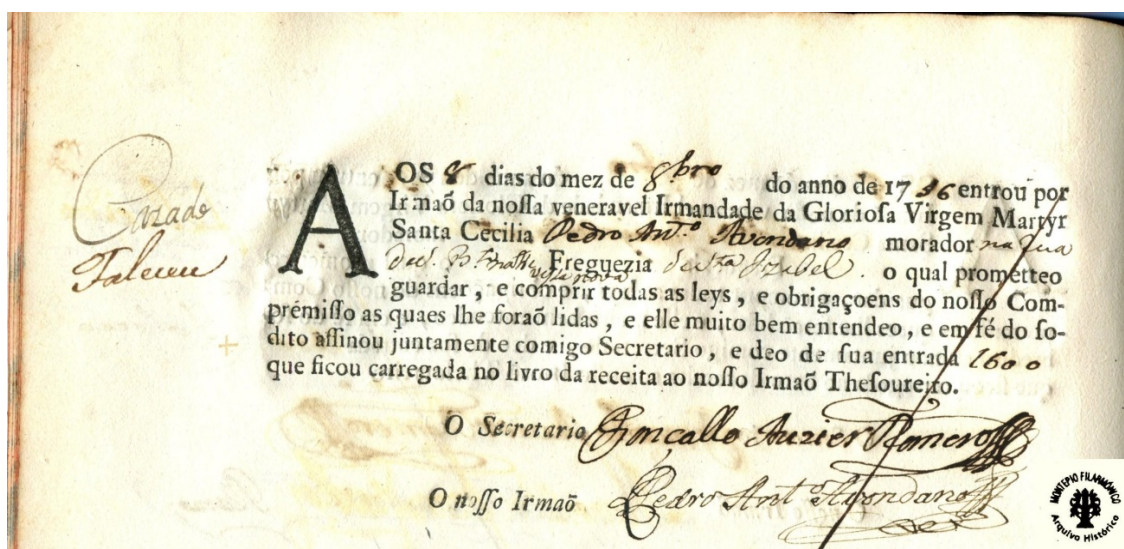 Cazado
Faleceu
AOS 8 dias do mez de 8bro do anno de 1756 entrou por
Irmaõ da noſſa veneravel Irmandade da Glorioſa Virgem Martyr
Santa Cecilia Pedro Ant.º Avondano morador na Rua
Freguezia de Sta Izabel o qual prometteo
guardar, e comprir todas as leys, e obrigaçoens do noſſo Com-
prémiſſo as quaes lhe foraõ lidas, e elle muito bem entendeo, e em fé do ſo-
dito aſſinou juntamente comigo Secretario, e deo de ſua entrada 1600
que ficou carregada no livro da receita ao noſſo Irmaõ Theſoureiro.
O Secretario Goncallo Auzier Romero
O noſſo Irmaõ Pedro Antº Avondano
MONTEPIO FILARMÓNICO
Arquivo Histórico